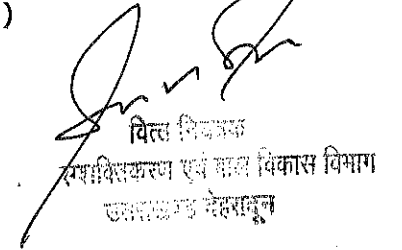 )
वित्त नियंत्रक
सशक्तिकरण एवं बाल विकास विभाग
उत्तराखण्ड देहरादून